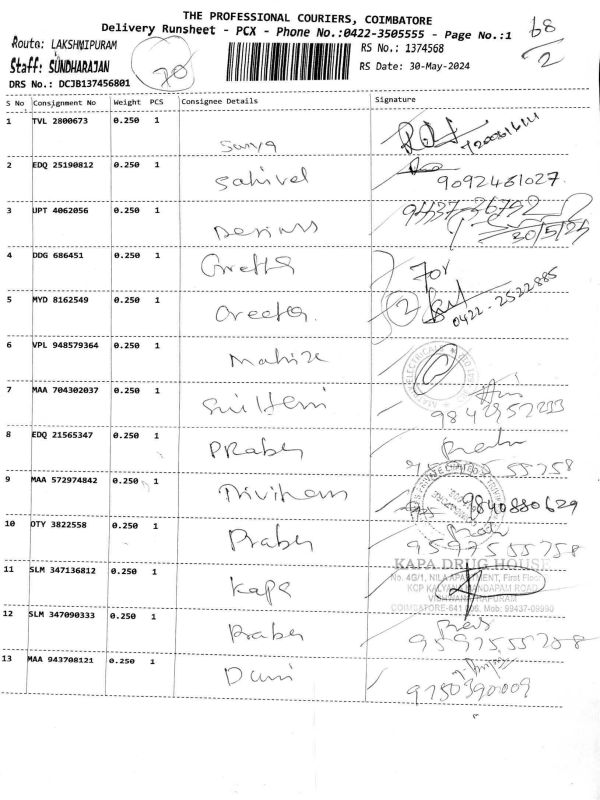 THE PROFESSIONAL COURIERS, COIMBATORE
Delivery Runsheet - PCX - Phone No.:0422-3505555 - Page No.:1
68/2
Route: LAKSHMIPURAM
RS No.: 1374568
Staff: SUNDHARAJAN
70
RS Date: 30-May-2024
DRS No.: DCJB137456801
S No Consignment No Weight PCS Consignee Details Signature
1 TVL 2800673 0.250 1 Surya
2 EDQ 25190812 0.250 1 Sahivel 9092461027
3 UPT 4062056 0.250 1
30/5/24
4 DDG 686451 0.250 1 Greetha For
5 MYD 8162549 0.250 1 Greetha. 2 0422-2522885
6 VPL 948579364 0.250 1
7 MAA 704302037 0.250 1
8 EDQ 21565347 0.250 1 Prabu 55758
9 MAA 572974842 0.250 1 9840880629
10 OTY 3822558 0.250 1 Prabu 9597555758
KAPA DRUG HOUSE
No. 4G/1, NILA APARTMENT, First Floor
KCP KALYANA MANDAPAM ROAD
11 SLM 347136812 0.250 1 Kapa
COIMBATORE-641 006. Mob: 99437-09990
12 SLM 347090333 0.250 1 Prabu
13 MAA 943708121 0.250 1 Dani 9750390009